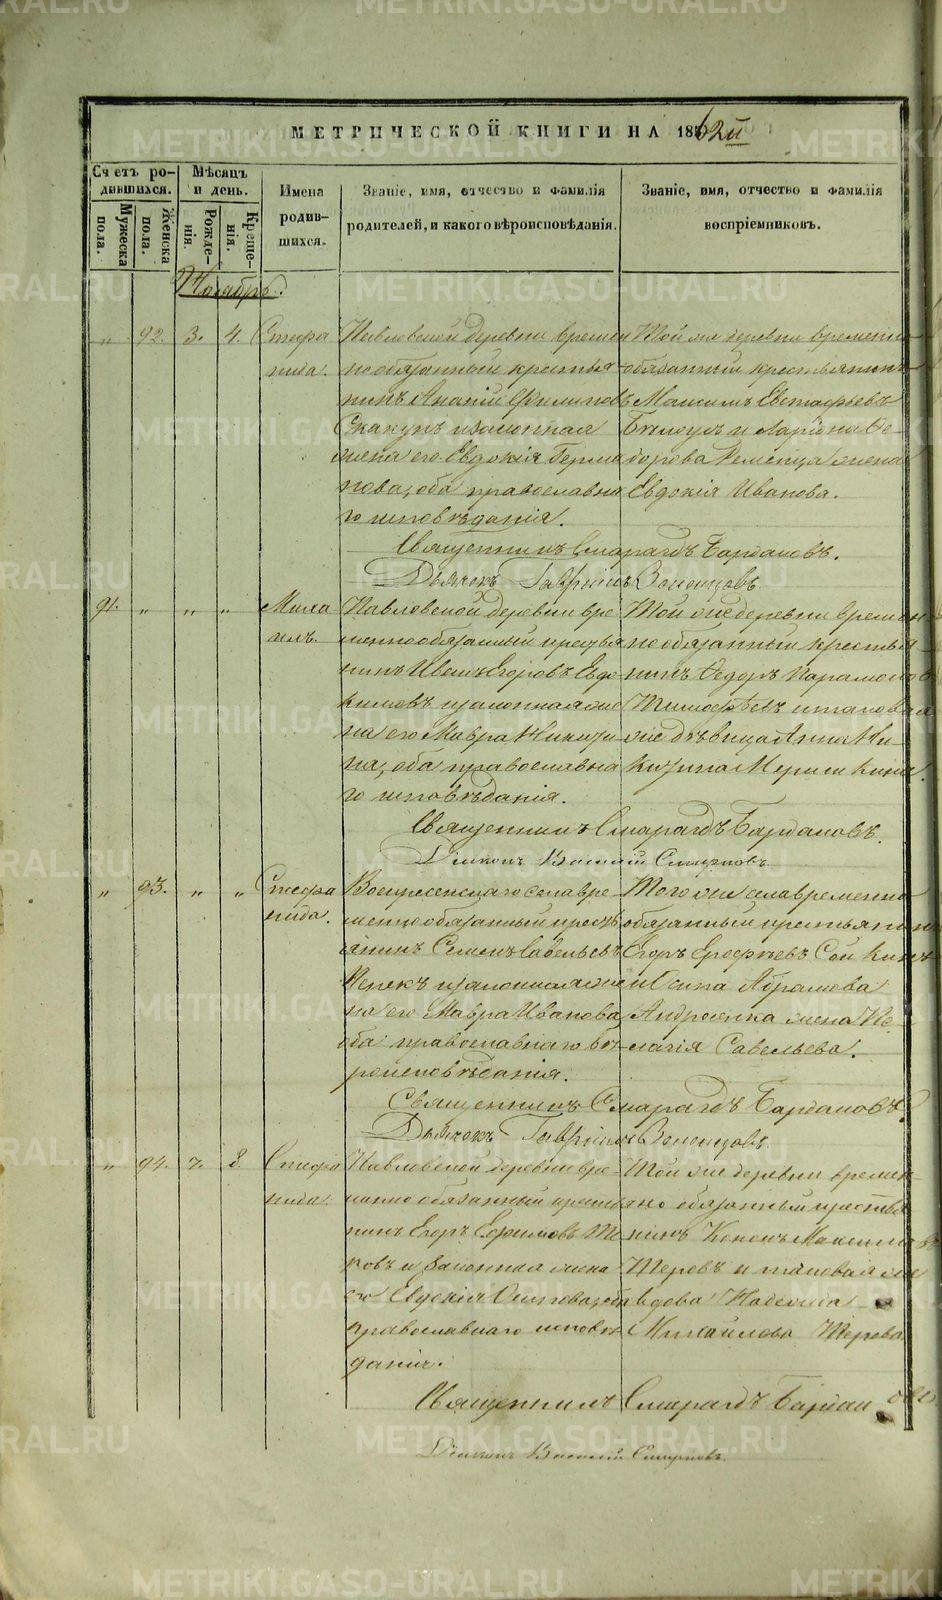 МЕТРИЧЕСКОЙ КНИГИ НА 1862й
Счетъ родившихся.
Мужеска пола.
Женска пола.
Мѣсяцъ и день.
Рожденія.
Крещенія.
Имена родившихся.
Званіе, имя, отчество и фамилія родителей, и какого вѣроисповѣданія.
Званіе, имя, отчество и фамилія воспріемниковъ.
Ноябрь.
„ 92. 3. 4. Стефанида.
Павловской деревни времен
но обязанный крестья
нинъ Ананій Филиповъ
Скакунъ и законная
жена его Евдокія Герма
нова, оба православна
го исповѣданія.
Той же деревни временно
обязанный крестьянинъ
Максимъ Евстафьевъ
Ѳе-
дорова жена
Евдокія Иванова.
Священникъ Смарагдъ Бардаковъ.
Дьячекъ Гавріилъ
91. „ „ „ Михаилъ.
Павловской деревни вре
менно обязанный крестья
нинъ Егоровъ Евдо
кимовъ и законная же
на его Мавра Никити
на, оба православна
го исповѣданія.
Той же деревни времен
но обязанный крестья
нинъ Ѳедоръ Парамонов
Тимофѣевъ и таковая
же дѣвица Анна Ни
китина
Священникъ Смарагдъ Бардаковъ.
Діаконъ Василій Смирновъ.
„ 93. „ „ Стефанида.
Воскресенскаго села вре
менно обязанный кресть
янинъ Семенъ Савельевъ
и законная же
на его Мавра Иванова,
оба православнаго вѣ
роисповѣданія.
Того же села временно
обязанный крестьянинъ
Егоръ Ерофѣевъ
Абрамова
жена Пе-
лагія Савельева.
Священникъ Смарагдъ Бардаковъ.
Дьячекъ Гавріилъ
„ 94. 7. 8. Стефанида.
Павловской деревни вре
менно обязанный кресть
нинъ Егоръ Ефимовъ
и законная жена
его Евдокія Осипова, оба
православнаго исповѣ
данія.
Той же деревни времен-
но обязанный крестья
нинъ Кононъ Максимовъ
Теровъ и таковая же
вдова Надежда
Михайлова Терова
Священникъ Смарагдъ Бардаковъ
Діаконъ Василій Смирновъ.
METRIKI.GASO-URAL.RU